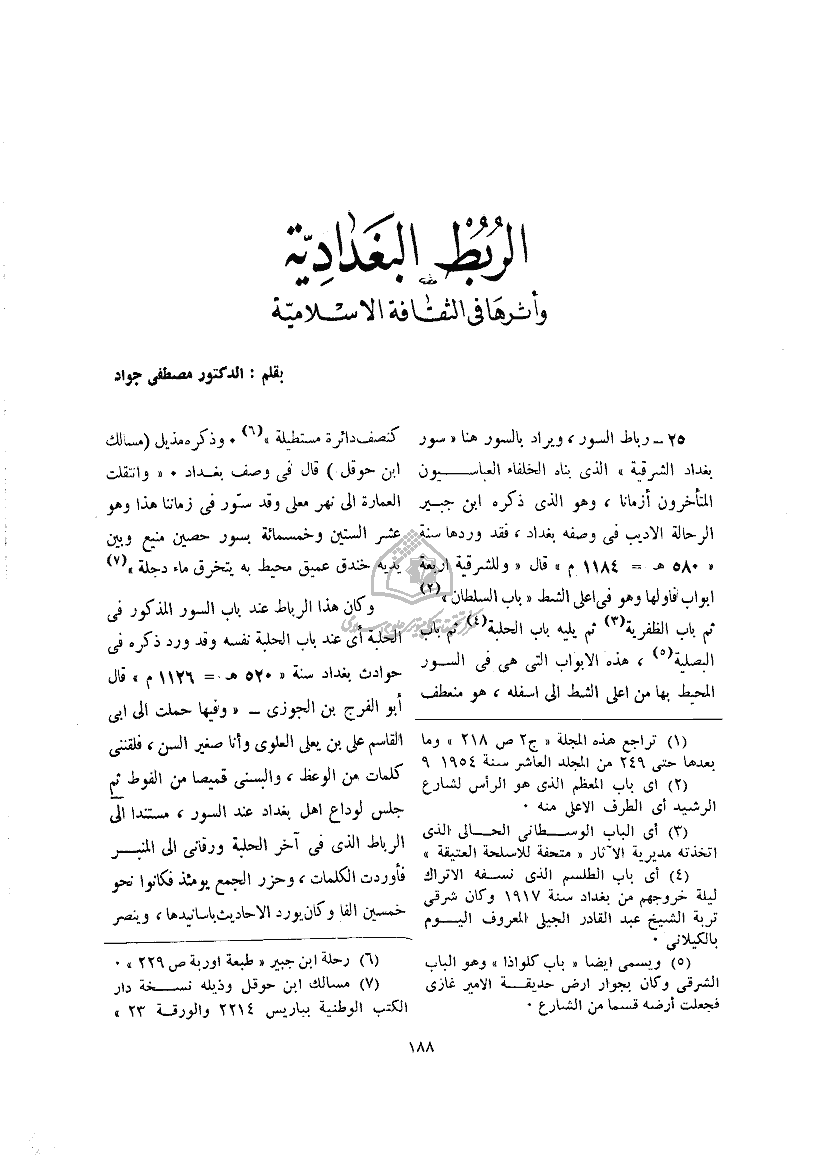 الرُبُطْ البَغدَاديّة
وأثرهَا فى الثقافة الاسْلاميّة
بقلم : الدكتور مصطفى جواد
٢٥ ـ رباط السور ، ويراد بالسور هنا « سور
بغداد الشرقية » الذى بناه الخلفاء العباسيون
المتأخرون أزمانا ، وهو الذى ذكره ابن جبير
الرحالة الاديب فى وصفه بغداد ، فقد وردها سنة
« ٥٨٠ هـ = ١١٨٤ م » قال « وللشرقية اربعة
ابواب فاولها وهو فى اعلى الشط « باب السلطان » (٢)
ثم باب الظفرية (٣) ثم يليه باب الحلبة (٤) ثم باب
البصلية (٥) ، هذه الابواب التى هى فى السور
المحيط بها من اعلى الشط الى اسفله ، هو منعطف
(١) تراجع هذه المجلة « ج٢ ص ٢١٨ » وما
بعدها حتى ٢٤٩ من المجلد العاشر سنة ١٩٥٤ ٩
(٢) اى باب المعظم الذى هو الرأس لشارع
الرشيد أى الطرف الاعلى منه ٠
(٣) أى الباب الوسطانى الحالى الذى
اتخذته مديرية الآثار « متحفة للاسلحة العتيقة »
(٤) أى باب الطلسم الذى نسفه الاتراك
ليلة خروجهم من بغداد سنة ١٩١٧ وكان شرقى
تربة الشيخ عبد القادر الجيلى المعروف اليوم
بالكيلانى ٠
(٥) ويسمى ايضا « باب كلواذا » وهو الباب
الشرقى وكان بجوار ارض حديقة الامير غازى
فجعلت أرضه قسما من الشارع ٠
كنصف دائرة مستطيلة » (٦) ٠ وذكره مذيل (مسالك
ابن حوقل ) قال فى وصف بغداد ٠ « وانتقلت
العمارة الى نهر معلى وقد سوّر فى زماننا هذا وهو
عشر الستين وخمسمائة بسور حصين منيع وبين
يديه خندق عميق محيط به يتخرق ماء دجلة » (٧)
وكان هذا الرباط عند باب السور المذكور فى
الحلبة أى عند باب الحلبة نفسه وقد ورد ذكره فى
حوادث بغداد سنة « ٥٢٠ هـ = ١١٢٦ م » قال
أبو الفرج بن الجوزى ـ « وفيها حملت الى ابى
القاسم على بن يعلى العلوى وأنا صغير السن ، فلقننى
كلمات من الوعظ ، والبسنى قميصا من الفوط ثم
جلس لوداع اهل بغداد عند السور ، مستندا الى
الرباط الذى فى آخر الحلبة ورقانى الى المنبر
فأوردت الكلمات ، وحزر الجمع يومئذ فكانوا نحو
خمسين الفا وكان يورد الاحاديث باسانيدها ، وينصر
(٦) رحلة ابن جبير « طبعة اوربة ص ٢٢٩ » ٠
(٧) مسالك ابن حوقل وذيله نسخة دار
الكتب الوطنية بباريس ٢٢١٤ والورقة ٢٣ »
١٨٨